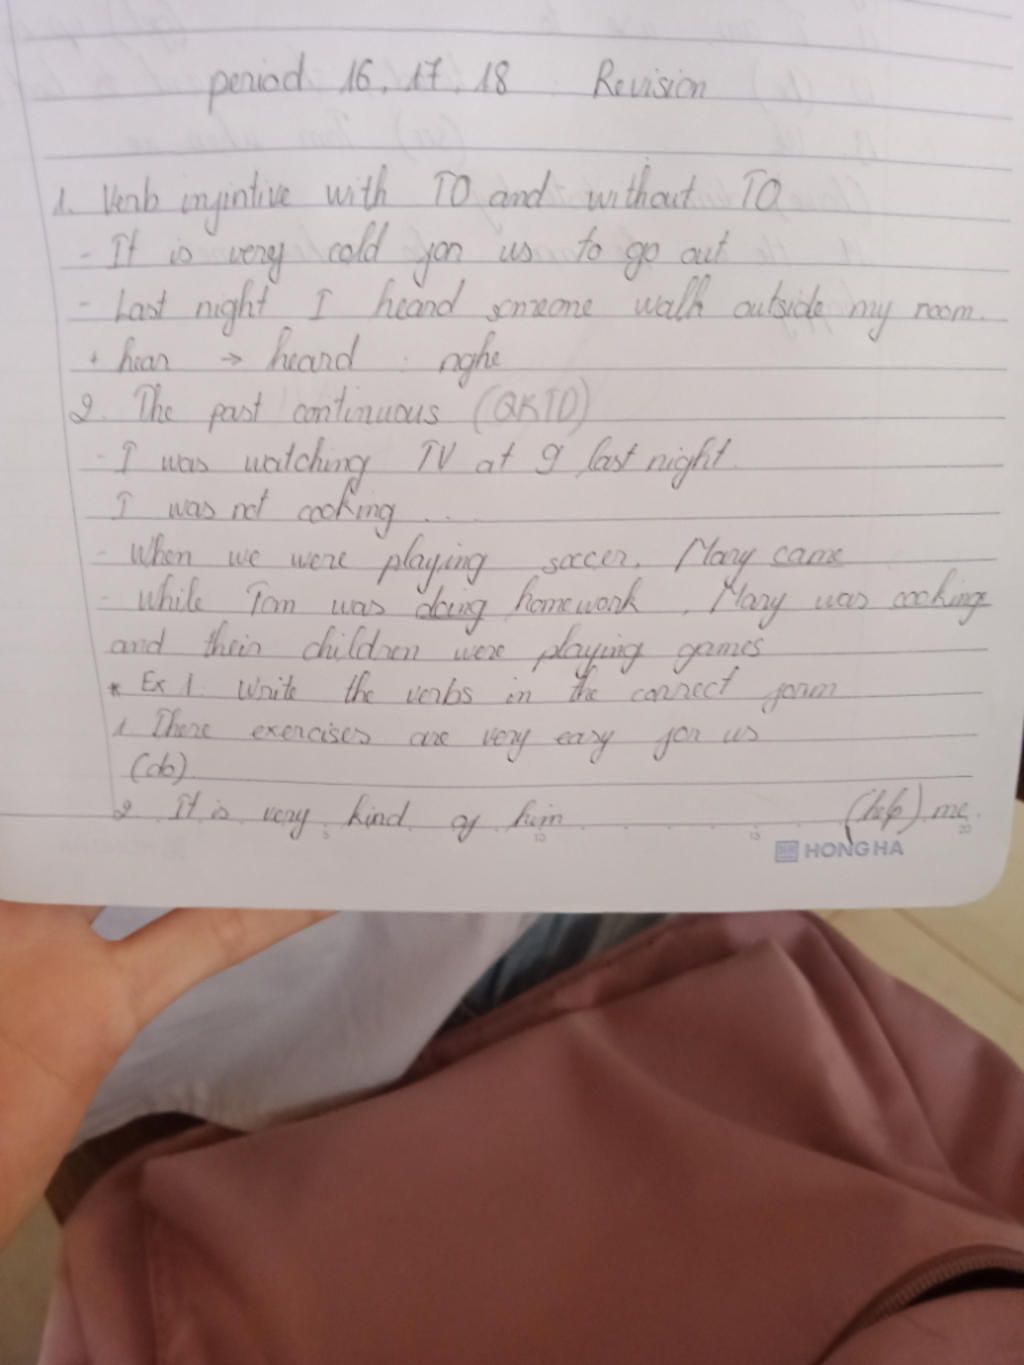 period 16, 17, 18 Revision
1. Verb infintive with TO and without TO
- It is very cold for us to go out
- Last night I heard someone walk outside my room.
+ hear → heard : nghe
2. The past continuous (QKTD)
- I was watching TV at 9 last night.
I was not cooking ...
- When we were playing soccer, Mary came
- While Tom was doing homework, Mary was cooking
and their children were playing games
* Ex 1. Write the verbs in the correct form
1. There exercises are very easy for us
(do)
2. It is very kind of him (help) me.
5 10 15 20
HONG HA